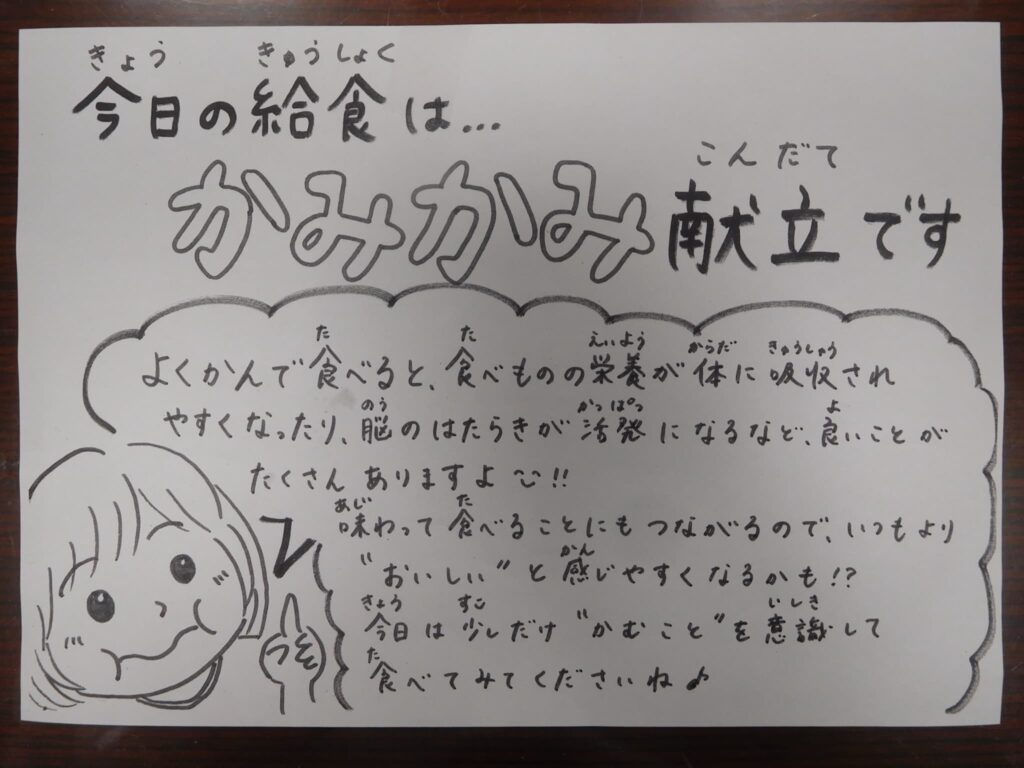 きょう きゅうしょく
今日の給食は...
こんだて
かみかみ献立です
た た えいよう からだ きゅうしゅう
よくかんで食べると、食べものの栄養が体に吸収され
のう かっぱつ よ
やすくなったり、脳のはたらきが活発になるなど、良いことが
たくさんありますよ!!
あじ た
味わって食べることにもつながるので、いつもより
かん
"おいしい"と感じやすくなるかも!?
きょう すこ いしき
今日は少しだけ"かむこと"を意識して
た
食べてみてくださいね♪